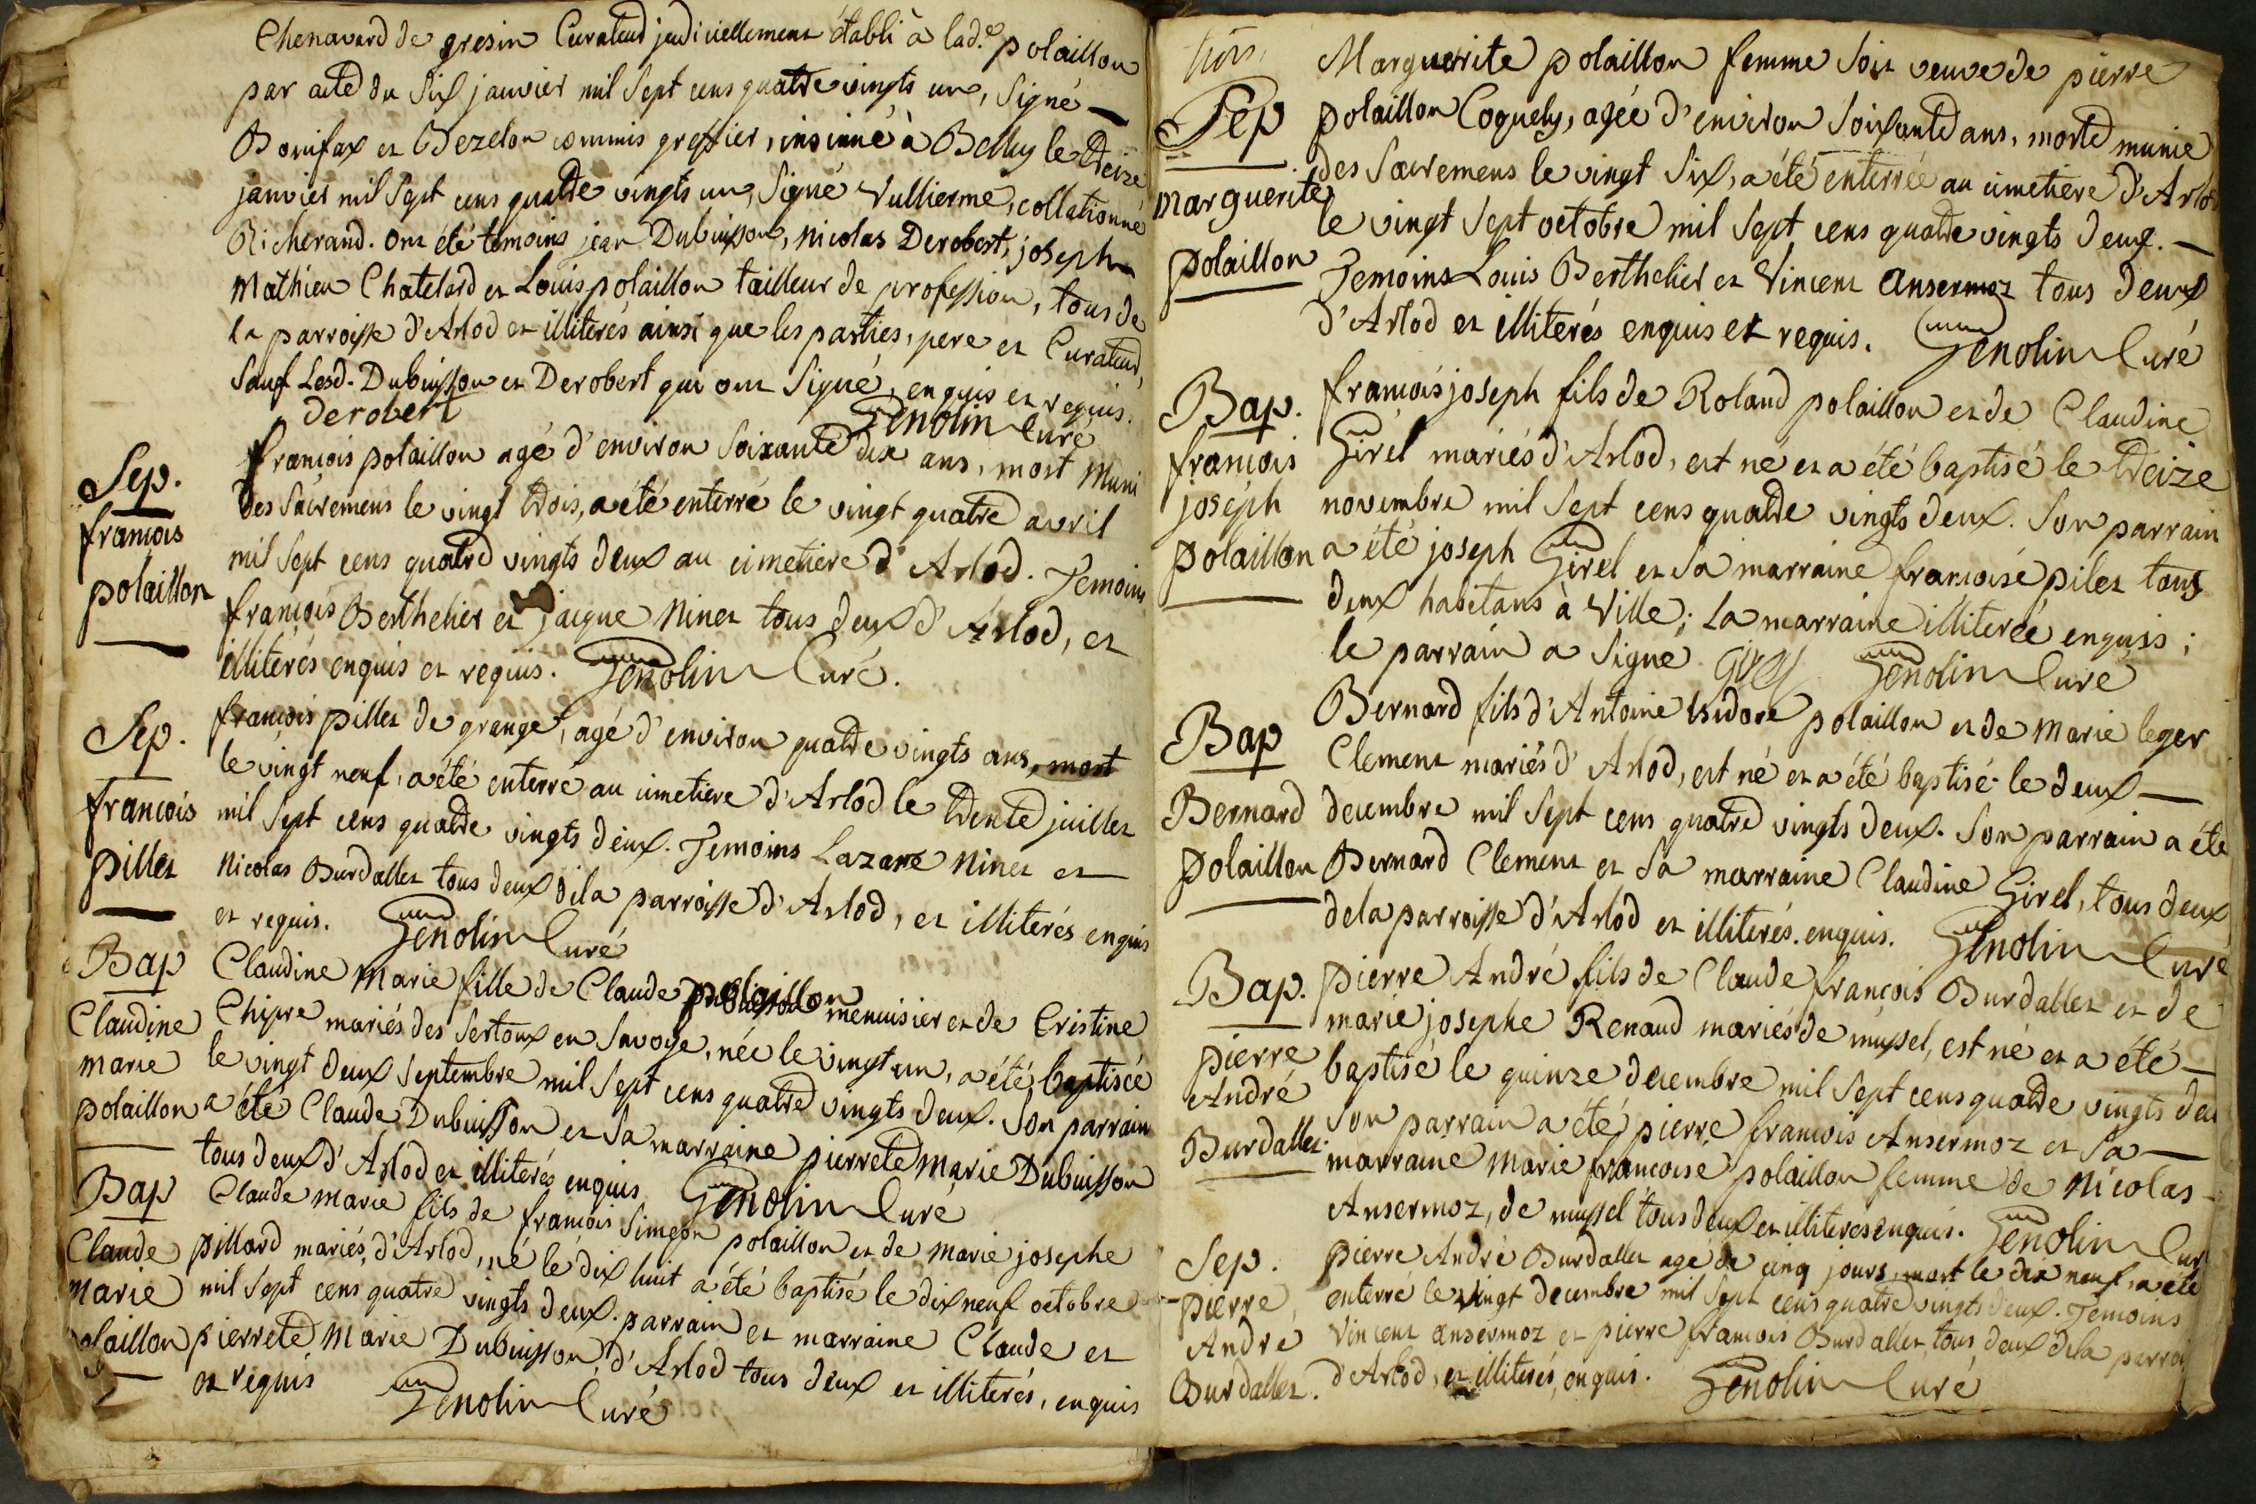 Chenavard de gresin Curateur judiciellement établi à lad.e polaillon
par acte du six janvier mil sept cens quatre vingts un, signé
Bonifax et Bezelon commis greffier, insinué à Belley le treize
janvier mil sept cens quatre vingts un, signé Vullierme, collationné
Richerand. ont été témoins jean Dubuisson, nicolas Derobert, joseph
mathieu Chatelard et Louis polaillon tailleur de profession, tous de
la parroisse d'Arlod et illiterés ainsi que les parties, pere et Curateur,
sauf Lesd. Dubuisson et Derobert qui ont signé, enquis et requis.
derobert Genolin Curé
Sep.
francois
polaillon
francois polaillon agé d'environ soixante dix ans, mort muni
des sacremens le vingt trois, a été enterré le vingt quatre avril
mil sept cens quatre vingts deux au cimetiere d'Arlod. Temoins
françois Berthelier et jacque Ninet tous deux d'Arlod, et
illiterés enquis et requis. Genolin Curé.
Sep.
francois
pillet
françois pillet de grange, agé d'environ quatre vingts ans, mort
le vingt neuf, a été enterré au cimetiere d'Arlod le trente juillet
mil sept cens quatre vingts deux. Temoins Lazare Ninet et
Nicolas Burdallet tous deux dela parroisse d'Arlod, et illiterés enquis
et requis. Genolin Curé
Bap
Claudine
marie
polaillon
Claudine Marie fille de Claude polaillon menuisier et de Cristine
Chipre mariés des sertoux en Savoye, née le vingt un, a été baptisée
le vingt deux septembre mil sept cens quatre vingts deux. Son parrain
a été Claude Dubuisson et sa marraine pierrete Marie Dubuisson
tous deux d'Arlod et illiterés enquis Genolin Curé
Bap
Claude
Marie
polaillon
Claude marie fils de francois Simeon polaillon et de marie josephe
pillard mariés, d'Arlod, né le dix huit a été baptisé le dix neuf octobre
mil sept cens quatre vingts deux. parrain et marraine Claude et
pierrete Marie Dubuisson, d'Arlod tous deux et illiterés, enquis
et requis Genolin Curé
Sep
marguerite
polaillon
Marguerite polaillon femme soit veuve de pierre
polaillon Coquely, agée d'environ soixante ans, morte munie
des sacremens le vingt six, a été enterrée au cimetiere d'Arlod
le vingt sept octobre mil sept cens quatre vingts deux.
Temoins Louis Berthelier et Vincent ansermoz tous deux
d'Arlod et illiterés enquis et requis. Genolin Curé
Bap.
francois
joseph
polaillon
francois joseph fils de Roland polaillon et de Claudine
Girel mariés d'Arlod, est né et a été baptisé le treize
novembre mil sept cens quatre vingts deux. Son parrain
a été joseph Girel et sa marraine francoise pilet tous
deux habitans à Ville; la marraine illiterée enquis;
le parrain a signé Girel Genolin Curé
Bap
Bernard
polaillon
Bernard fils d'Antoine Isidore polaillon et de marie leger
Clement mariés d'Arlod, est né et a été baptisé le deux
decembre mil sept cens quatre vingts deux. Son parrain a été
Bernard Clement et sa marraine Claudine Girel, tous deux
dela parroisse d'Arlod et illiterés. enquis. Genolin Curé
Bap.
pierre
André
Burdallet
pierre André fils de Claude françois Burdallet et de
marie josephe Renaud mariés de mussel, est né et a été
baptisé le quinze decembre mil sept cens quatre vingts deu
son parrain a été pierre francois Ansermoz et sa
marraine Marie francoise polaillon femme de Nicolas
Ansermoz, de mussel tous deux et illiterés enquis. Genolin Cur
Sep.
pierre
André
Burdallet.
pierre André Burdallet agé de cinq jours, mort le dix neuf, a été
enterré le vingt decembre mil sept cens quatre vingts deux. Temoins
Vincent ansermoz et pierre francois Burdallet, tous deux dela parroi
d'Arlod, et illiterés, enquis. Genolin Curé